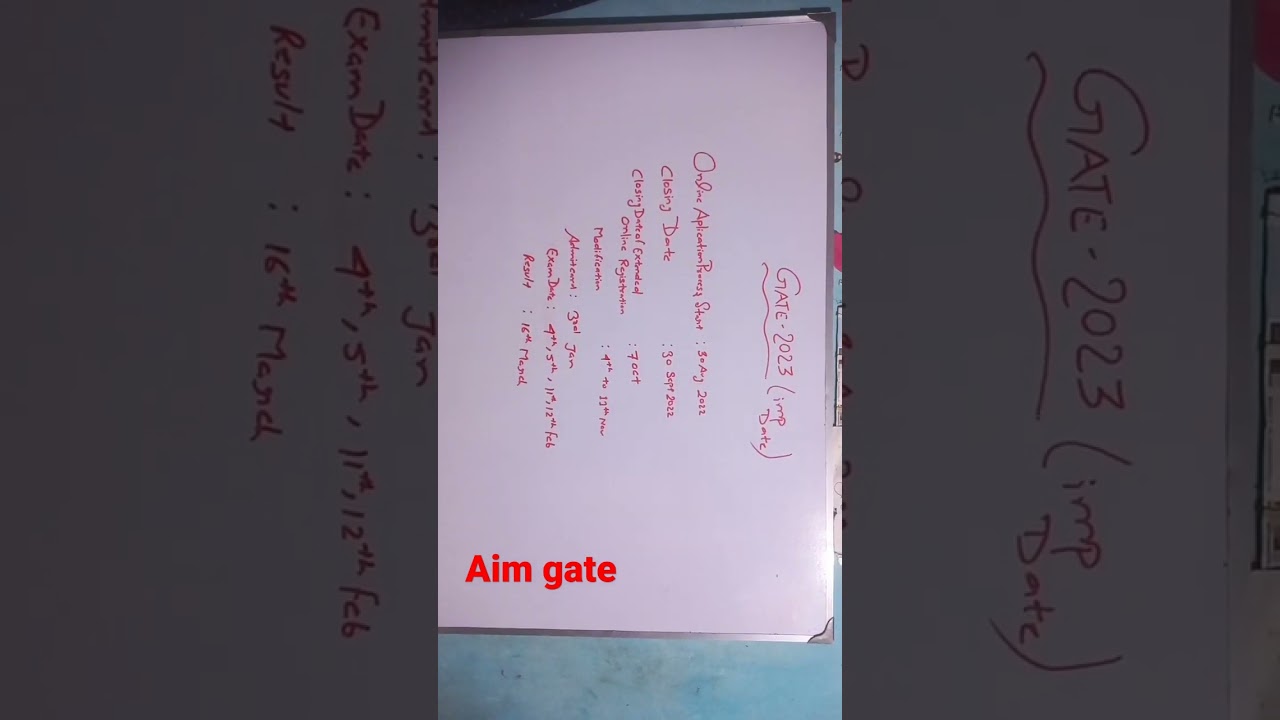 GATE-2023 (imp
Date)
Online Aplication Process Start : 30 Aug 2022
Closing Date : 30 Sept 2022
Closing Date of Extended
Online Registration : 7 oct
Modification : 4th to 11th Nov
Admitcard : 3rd Jan
Exam Date : 4th, 5th, 11th, 12th Feb
Result : 16th March
Aim gate